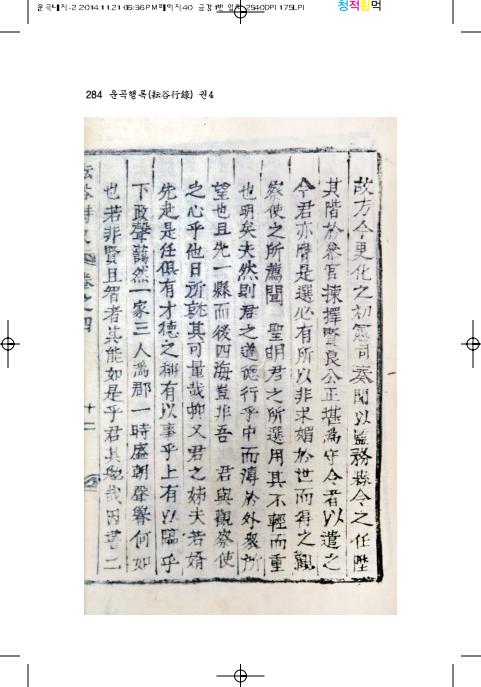 운곡대지-2 2014.11.21 05:36 PM 페이지40
2540DPI 175LPI
청적황먹
284 운곡행록(耘谷行錄) 권4
故方今更化之初憲司奏聞以監務縣令之任陞
其階於叅官揀擇賢良公正堪爲守令者以遣之
今君亦膺是選必有所以非求媚於世而得之觀
察使之所薦聞 聖明君之所選用其不輕而重
也明矣夫然則君之道德行乎中而溥於外衆所
望也且先一縣而後四海豈非吾 君與觀察使
之心乎他日所就其可量哉抑又君之姊夫若婿
先走是任俱有才德之稱有以事乎上有以臨乎
下政聲藹然一家三人爲郡一時盛朝聲譽何如
也若非賢且智者其能如是乎君其勉哉因書二
耘谷詩史 卷之四